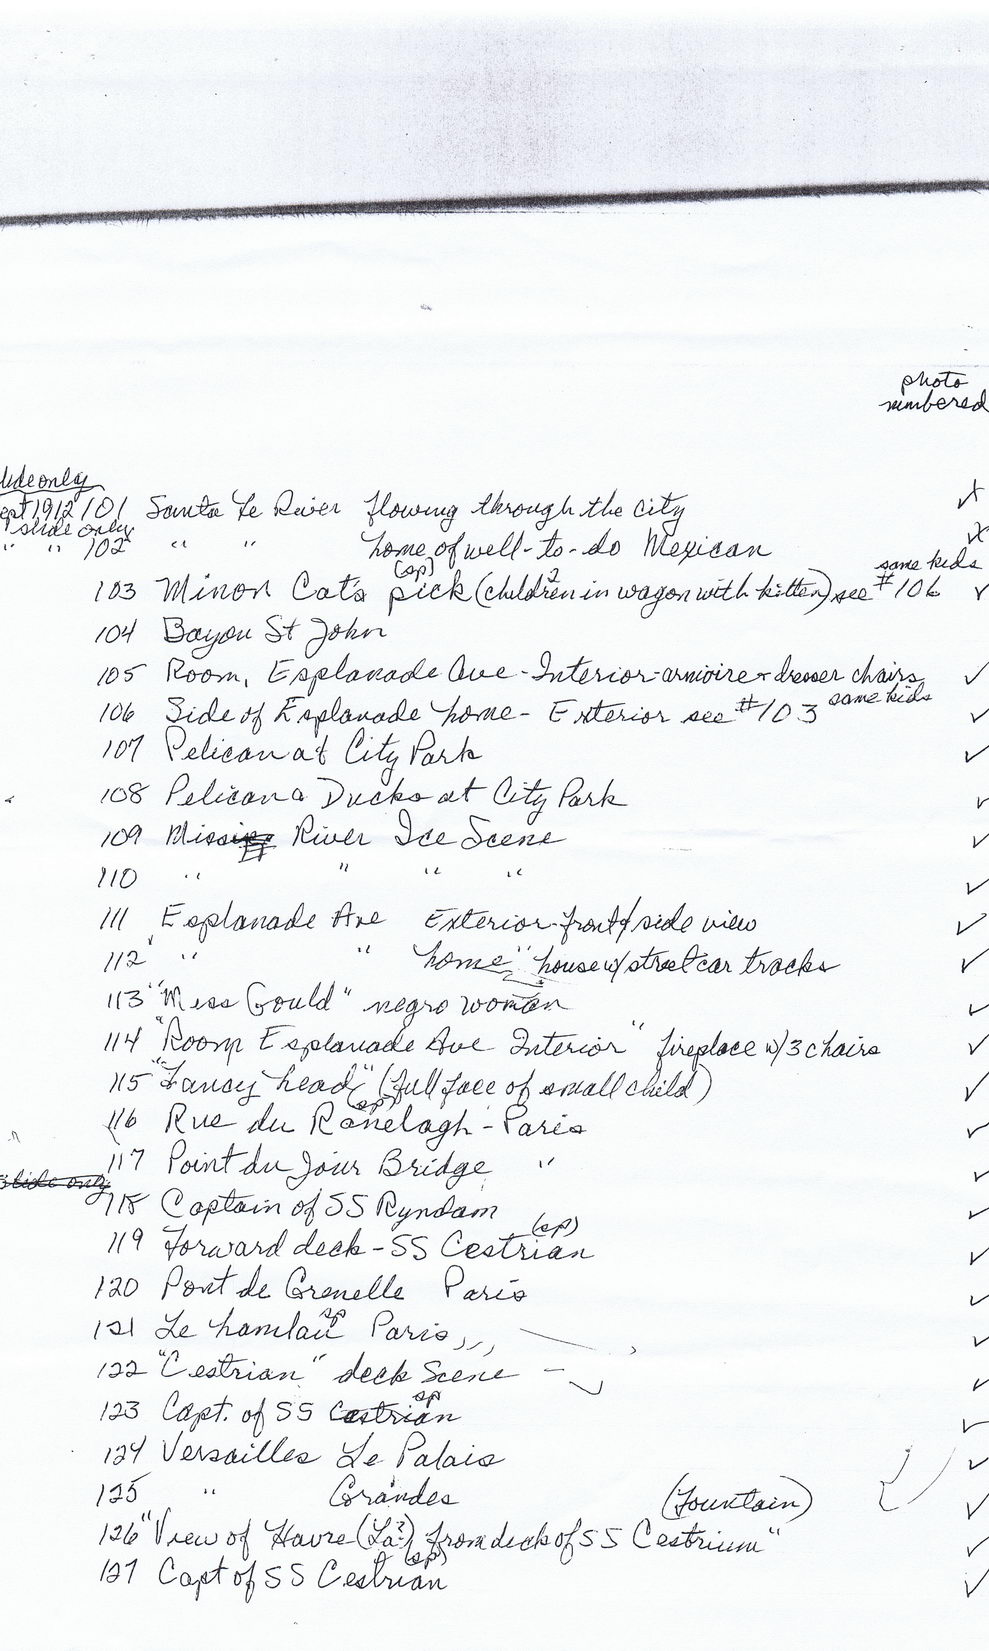 photo
numbered
lide only
ept 1912 101 Santa Fe River flowing through the city
slide only
" " 102 " " home of well-to-do Mexican
(sp) same kids
103 Minon Cat's pick (children in wagon with kitten) see #106 ✓
2
104 Bayou St John
105 Room, Esplanade Ave - Interior - armoire + dresser chairs ✓
106 Side of Esplanade home - Exterior see #103 same kids ✓
107 Pelican at City Park ✓
108 Pelican a Ducks at City Park ✓
109 Missis River Ice Scene ✓
110 " " " " ✓
111 Esplanade Ave Exterior-front/side view ✓
112 " " home" house w/ streetcar tracks ✓
113 "Miss Gould" negro woman ✓
114 "Room Esplanade Ave Interior" fireplace w/3 chairs ✓
115 "Fancy head" (full face of small child) ✓
(sp)
116 Rue du Ranelagh - Paris ✓
117 Point du Jour Bridge " ✓
slide only
118 Captain of SS Ryndam ✓
(sp)
119 Forward deck - SS Cestrian ✓
120 Pont de Grenelle Paris ✓
sp
121 Le hamlau Paris ✓
122 "Cestrian" deck Scene - ✓
sp
123 Capt. of SS Cestrian ✓
124 Versailles Le Palais ✓
125 " Grandes (Fountain) ✓
126 "View of Havre (La?) from deck of SS Cestrium" ✓
(sp)
127 Capt of SS Cestrian ✓